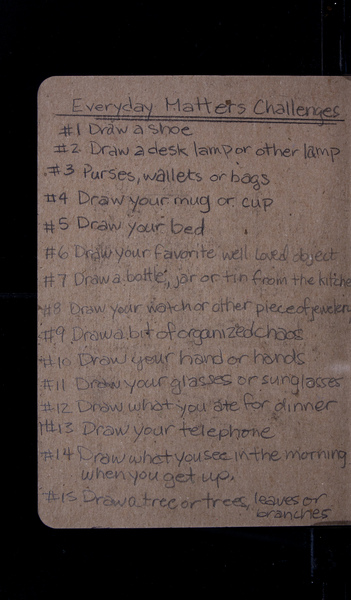 Everyday Matters Challenges
#1 Draw a shoe
#2 Draw a desk lamp or other lamp
#3 Purses, wallets or bags
#4 Draw your mug or cup
#5 Draw your bed
#6 Draw your favorite well loved object
#7 Draw a bottle, jar or tin from the kitche
#8 Draw your watch or other piece of jewelery
#9 Draw a bit of organized chaos
#10 Draw your hand or hands
#11 Draw your glasses or sunglasses
#12 Draw what you ate for dinner
#13 Draw your telephone
#14 Draw what you see in the morning
when you get up.
#15 Draw a tree or trees, leaves or
branches